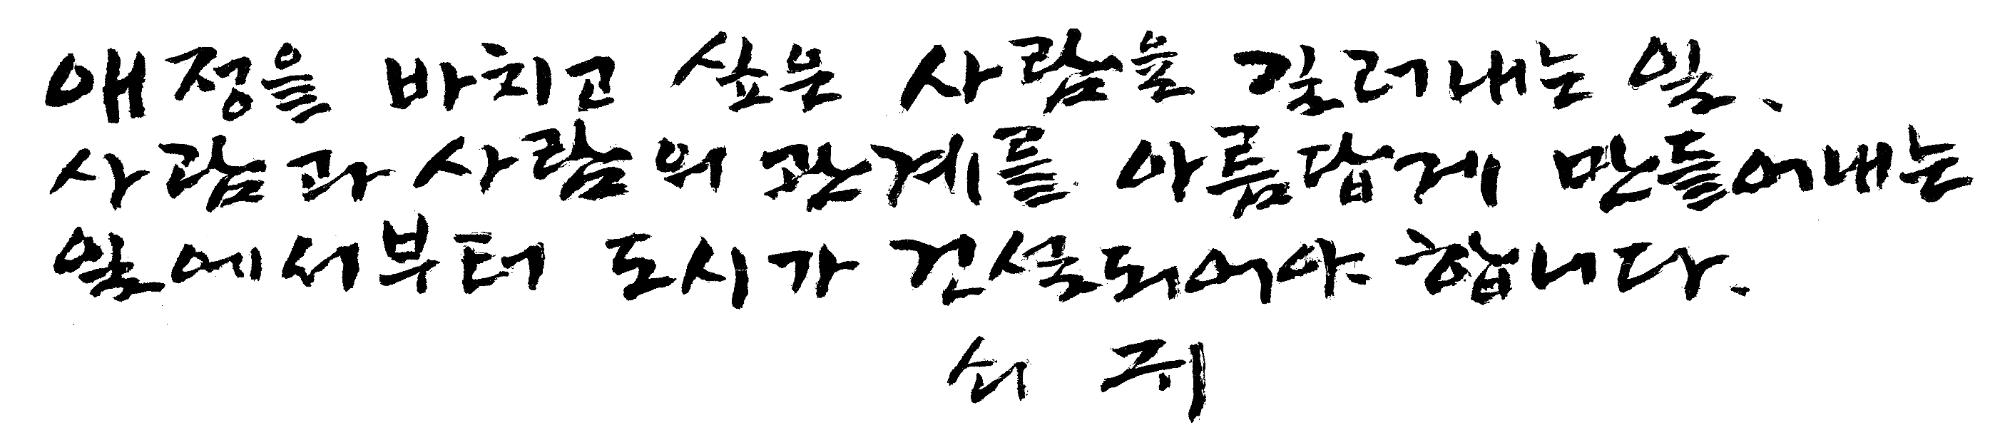 애정을 바치고 싶은 사람을 길러내는 일.
사람과 사람의 관계를 아름답게 만들어내는
일에서부터 도시가 건설되어야 합니다.
쇠귀